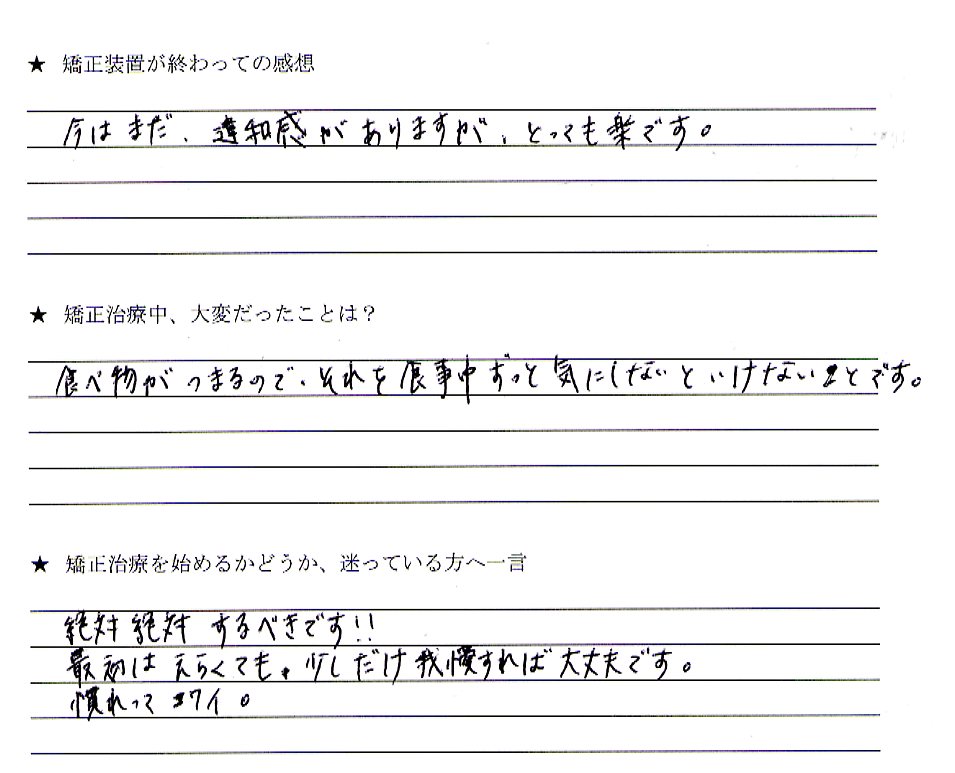 ★ 矯正装置が終わっての感想
今はまだ、違和感がありますが、とっても楽です。
★ 矯正治療中、大変だったことは？
食べ物がつまるので、それを食事中ずっと気にしないといけないことです。
★ 矯正治療を始めるかどうか、迷っている方へ一言
絶対絶対するべきです!!
最初はえらくても、少しだけ我慢すれば大丈夫です。
慣れってコワイ。